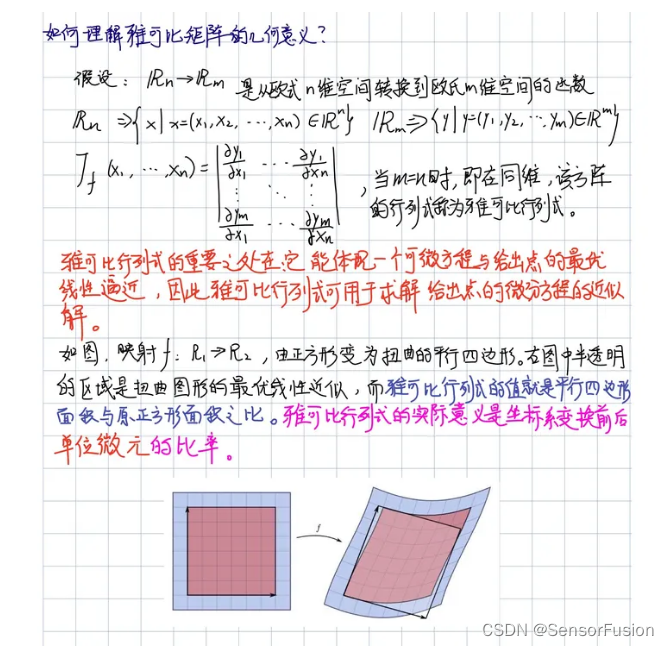 如何理解雅可比矩阵的几何意义？
假设：ℝn→ℝm 是从欧式n维空间转换到欧氏m维空间的函数
ℝn ⇒{x|x=(x1,x2,⋯,xn)∈ℝ^n} ℝm⇒{y|y=(y1,y2,⋯,ym)∈ℝ^m}
Jf(x1,⋯,xn)=|∂y1/∂x1 ⋯ ∂y1/∂xn ⋮ ⋱ ⋮ ∂ym/∂x1 ⋯ ∂ym/∂xn|，当m=n时，即在同维，该方阵
的行列式称为雅可比行列式。
雅可比行列式的重要之处在它能体现一个可微方程与给出点的最优
线性逼近，因此雅可比行列式可用于求解给出点的微分方程的近似
解。
如图，映射f：R1→R2，由正方形变为扭曲的平行四边形。右图中半透明
的区域是扭曲图形的最优线性近似，而雅可比行列式的值就是平行四边形
面积与原正方形面积之比。雅可比行列式的实际意义是坐标系变换前后
单位微元的比率。
f
CSDN @SensorFusion